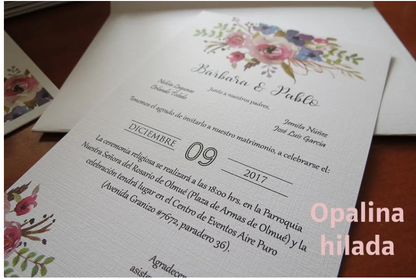 Bárbara & Pablo
Junto a nuestros padres,
Jamila Núñez
José Luis García
Tenemos el agrado de invitarlo a nuestro matrimonio, a celebrarse el:
DICIEMBRE
09
2017
La ceremonia religiosa se realizará a las 18:00 hrs. en la Parroquia
Nuestra Señora del Rosario de Olmué (Plaza de Armas de Olmué) y la
celebración tendrá lugar en el Centro de Eventos Aire Puro
(Avenida Granizo #7672, paradero 36).
Agradecer
Opalina
hilada